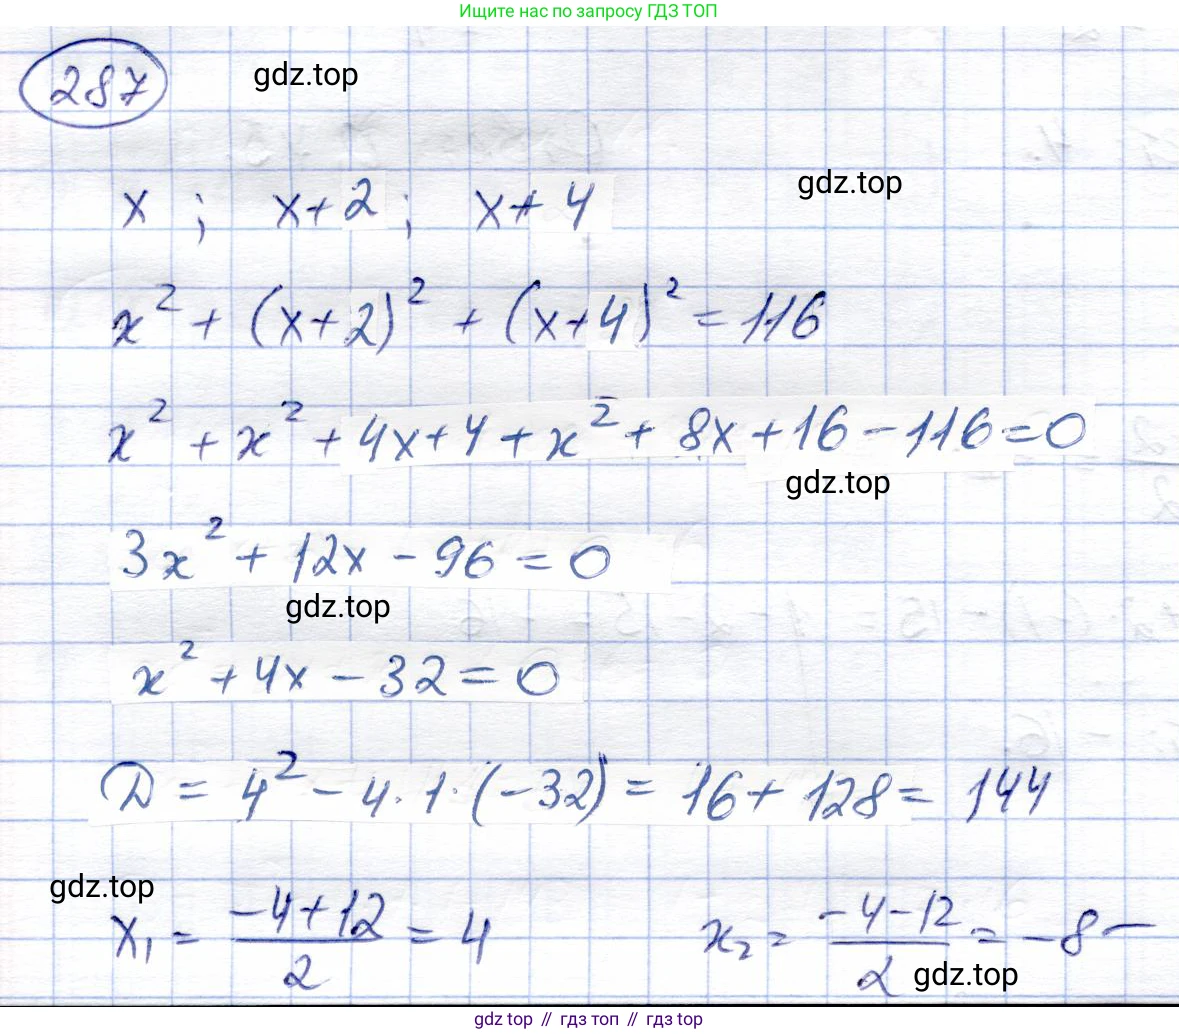 Ищите нас по запросу ГДЗ ТОП
287 gdz.top
x ; x+2 ; x+4 gdz.top
x² + (x+2)² + (x+4)² = 116
x² + x² + 4x + 4 + x² + 8x + 16 - 116 = 0
gdz.top
3x² + 12x - 96 = 0
gdz.top
x² + 4x - 32 = 0
D = 4² - 4 · 1 · (-32) = 16 + 128 = 144
gdz.top
x₁ = (-4+12)/2 = 4 x₂ = (-4-12)/2 = -8 -
gdz.top
gdz top // гдз топ // гдз top